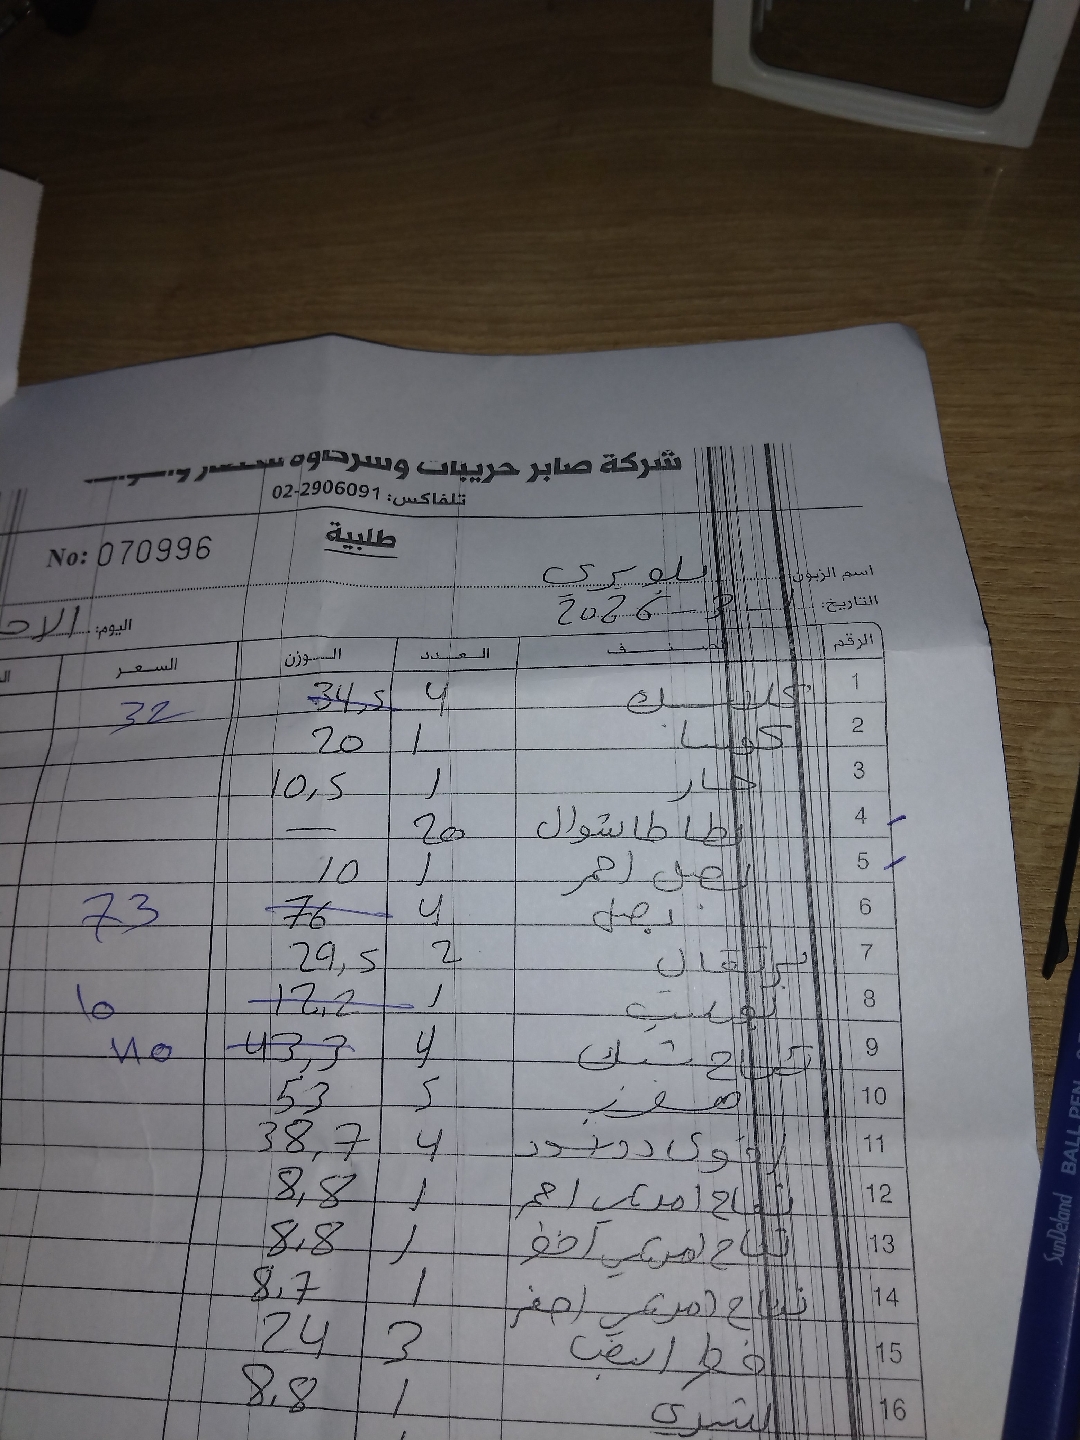 شركة صابر حريبات وسرحاوه
تلفاكس: 02-2906091
طلبية
No: 070996
اسم الزبون
التاريخ: 2026
اليوم: الاحد
الرقم الصنف العدد الوزن السعر
1 4 34,5 32
2 كوسا 1 20
3 خيار 1 10,5
4 بطاطا شوال 20 —
5 بصل احمر 1 10
6 بصل 4 76 73
7 برتقال 2 29,5
8 1 12,2 10
9 تفاح 4 43,3
10 موز 5 53
11 4 38,7
12 تفاح امريكي احمر 1 8,8
13 تفاح امريكي اخضر 1 8,8
14 تفاح امريكي اصفر 1 8,7
15 3 24
16 1 8,8
SunDeland BALL PEN